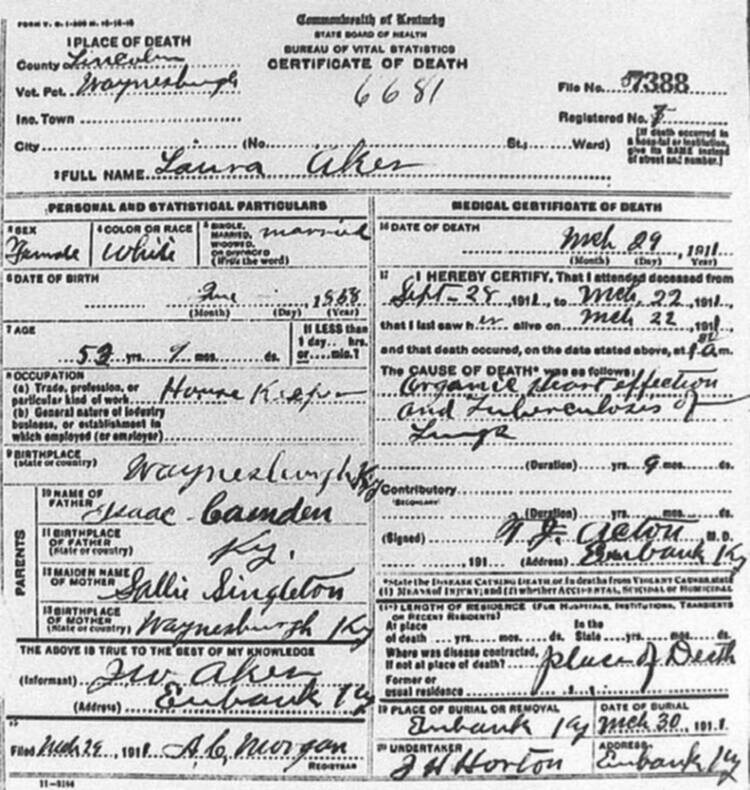 FORM V. S. 1-
Commonwealth of Kentucky
STATE BOARD OF HEALTH
BUREAU OF VITAL STATISTICS
CERTIFICATE OF DEATH
1 PLACE OF DEATH
County of Lincoln
Vot. Pct. Waynesburgh
Inc. Town
City (No. St.; Ward)
6681
File No. 7388
Registered No. 7
[If death occurred in a hospital or institution, give its NAME instead of street and number.]
2 FULL NAME Laura Aker
PERSONAL AND STATISTICAL PARTICULARS
3 SEX
Female
4 COLOR OR RACE
White
5 SINGLE, MARRIED, WIDOWED, OR DIVORCED (Write the word)
married
6 DATE OF BIRTH
1858
(Month) (Day) (Year)
7 AGE
53 yrs. 9 mos. ds.
If LESS than 1 day, hrs. or min.?
8 OCCUPATION
(a) Trade, profession, or particular kind of work House Keeper
(b) General nature of industry business, or establishment in which employed (or employer)
9 BIRTHPLACE
(State or country) Waynesburgh Ky
PARENTS
10 NAME OF FATHER Isaac Camden
11 BIRTHPLACE OF FATHER (State or country) Ky.
12 MAIDEN NAME OF MOTHER Sallie Singleton
13 BIRTHPLACE OF MOTHER (State or country) Waynesburgh Ky
THE ABOVE IS TRUE TO THE BEST OF MY KNOWLEDGE
(Informant) J W Aker
(Address) Eubank Ky
15
Filed Mch 29, 1911 A. C. Morgan
REGISTRAR
11-3184
MEDICAL CERTIFICATE OF DEATH
16 DATE OF DEATH
Mch 29, 1911
(Month) (Day) (Year)
17 I HEREBY CERTIFY, That I attended deceased from
Sept-28, 1911, to Mch, 22, 1911,
that I last saw her alive on Mch 22, 1911
and that death occured, on the date stated above, at a m.
The CAUSE OF DEATH* was as follows:
Organic heart effection
and Tuberculoses of
Lungs
(Duration) yrs. 9 mos. ds.
Contributory
(SECONDARY)
(Duration) yrs. mos. ds.
(Signed) Acton, M. D.
191 (Address) Eubank Ky
*State the DISEASE CAUSING DEATH, or in deaths from VIOLENT CAUSES, state (1) MEANS OF INJURY; and (2) whether ACCIDENTAL, SUICIDAL or HOMICIDAL
LENGTH OF RESIDENCE (FOR HOSPITALS, INSTITUTIONS, TRANSIENTS OR RECENT RESIDENTS)
At place of death yrs. mos. ds. In the State yrs. mos. ds.
Where was disease contracted,
If not at place of death? place of Death
Former or usual residence
19 PLACE OF BURIAL OR REMOVAL
Eubank Ky
DATE OF BURIAL
Mch 30, 1911
20 UNDERTAKER
J H Horton
ADDRESS
Eubank Ky